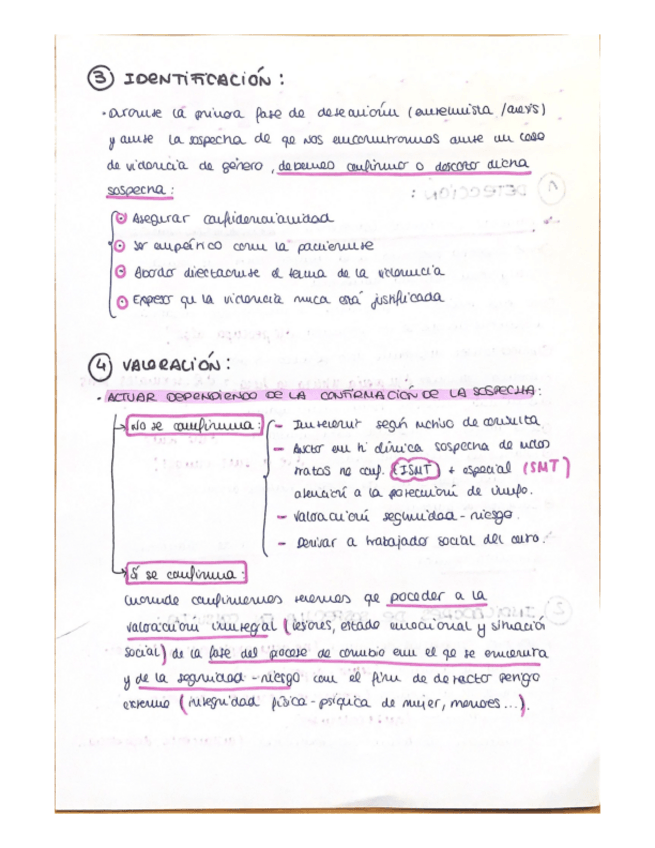 ③ IDENTIFICACIÓN :
· Durante la primera fase de detección (entrevista /
y ante la sospecha de qe nos encontramos ante un caso
de violencia de género, debemos confirmar o descartar dicha
sospecha :
Asegurar confidencialidad
Ser empático con la paciente
Abordar directamente el tema de la violencia
Expresar qe la violencia nunca está justificada
④ VALORACIÓN :
· ACTUAR DEPENDIENDO DE LA CONFIRMACIÓN DE LA SOSPECHA :
No se confirma :
- Intervenir según motivo de consulta
- Anotar en hª clínica sospecha de malos
tratos no conf. (ISMT) + especial (SMT)
atención a la
- Valoración seguridad - riesgo.
- Derivar a trabajador social del centro.
Sí se confirma :
Cuando confirmemos tenemos qe proceder a la
valoración integral (lesiones, estado emocional y situación
social) de la fase del proceso de cambio en el qe se encuentra
y de la seguridad - riesgo con el fin de detectar peligro
extremo (integridad física - psíquica de mujer, menores...).